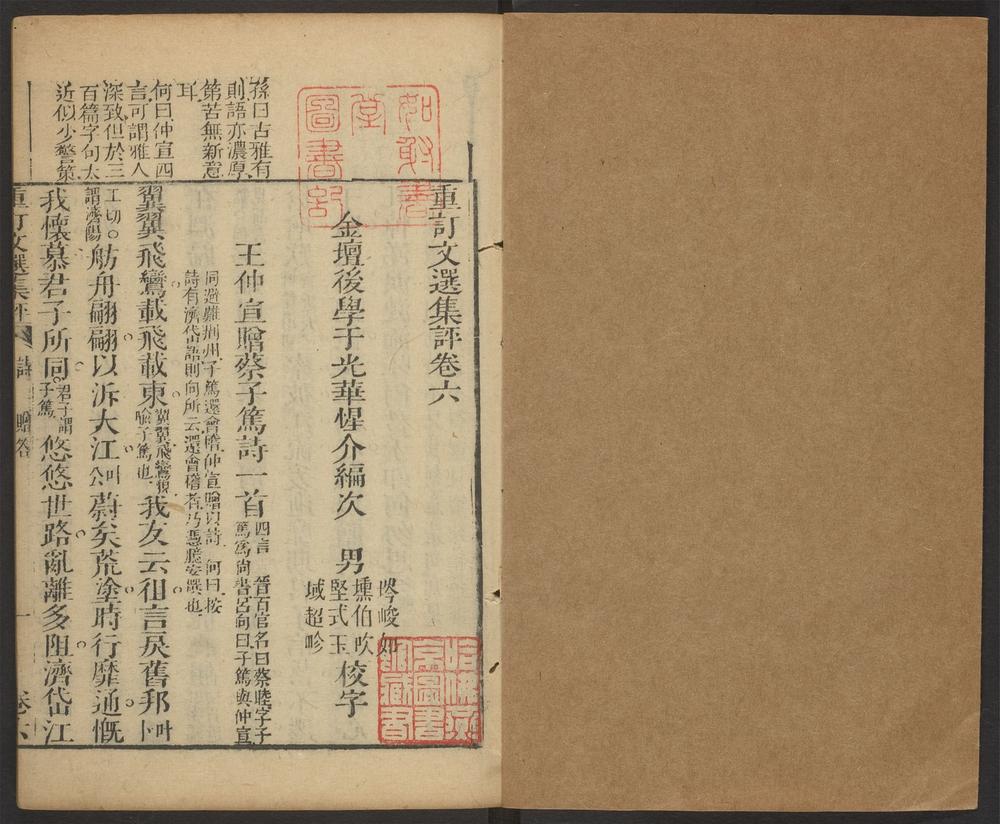 重訂文選集評卷六
金壇後學于光華惺介編次　男
岑峻如
壎伯吹
堅式玉
域超畛
校字
王仲宣贈蔡子篤詩一首
四言　晉百官名曰蔡睦字子
篤為尚書呂向曰子篤與仲宣
同避難荆州子篤還會稽仲宣贈以詩　何曰按
詩有濟岱語則向所云還會稽者乃憑臆妄譔也
翼翼飛鸞載飛載東
翼翼飛鸞
喻子篤也
我友云徂言戾舊邦
叶
卜
工切
謂濟陽
舫舟翩翩以泝大江
叶
公
蔚矣荒塗時行靡通慨
我懷慕君子所同
君子謂
子篤
悠悠世路亂離多阻濟岱江
孫曰古雅有
則語亦濃厚
第苦無新意
耳
何曰仲宣四
言可謂雅人
深致但於三
百篇字句太
近似少警策
重訂文選集評
詩　贈答
一
卷六
圖書記
哈佛燕
京圖書
館藏書